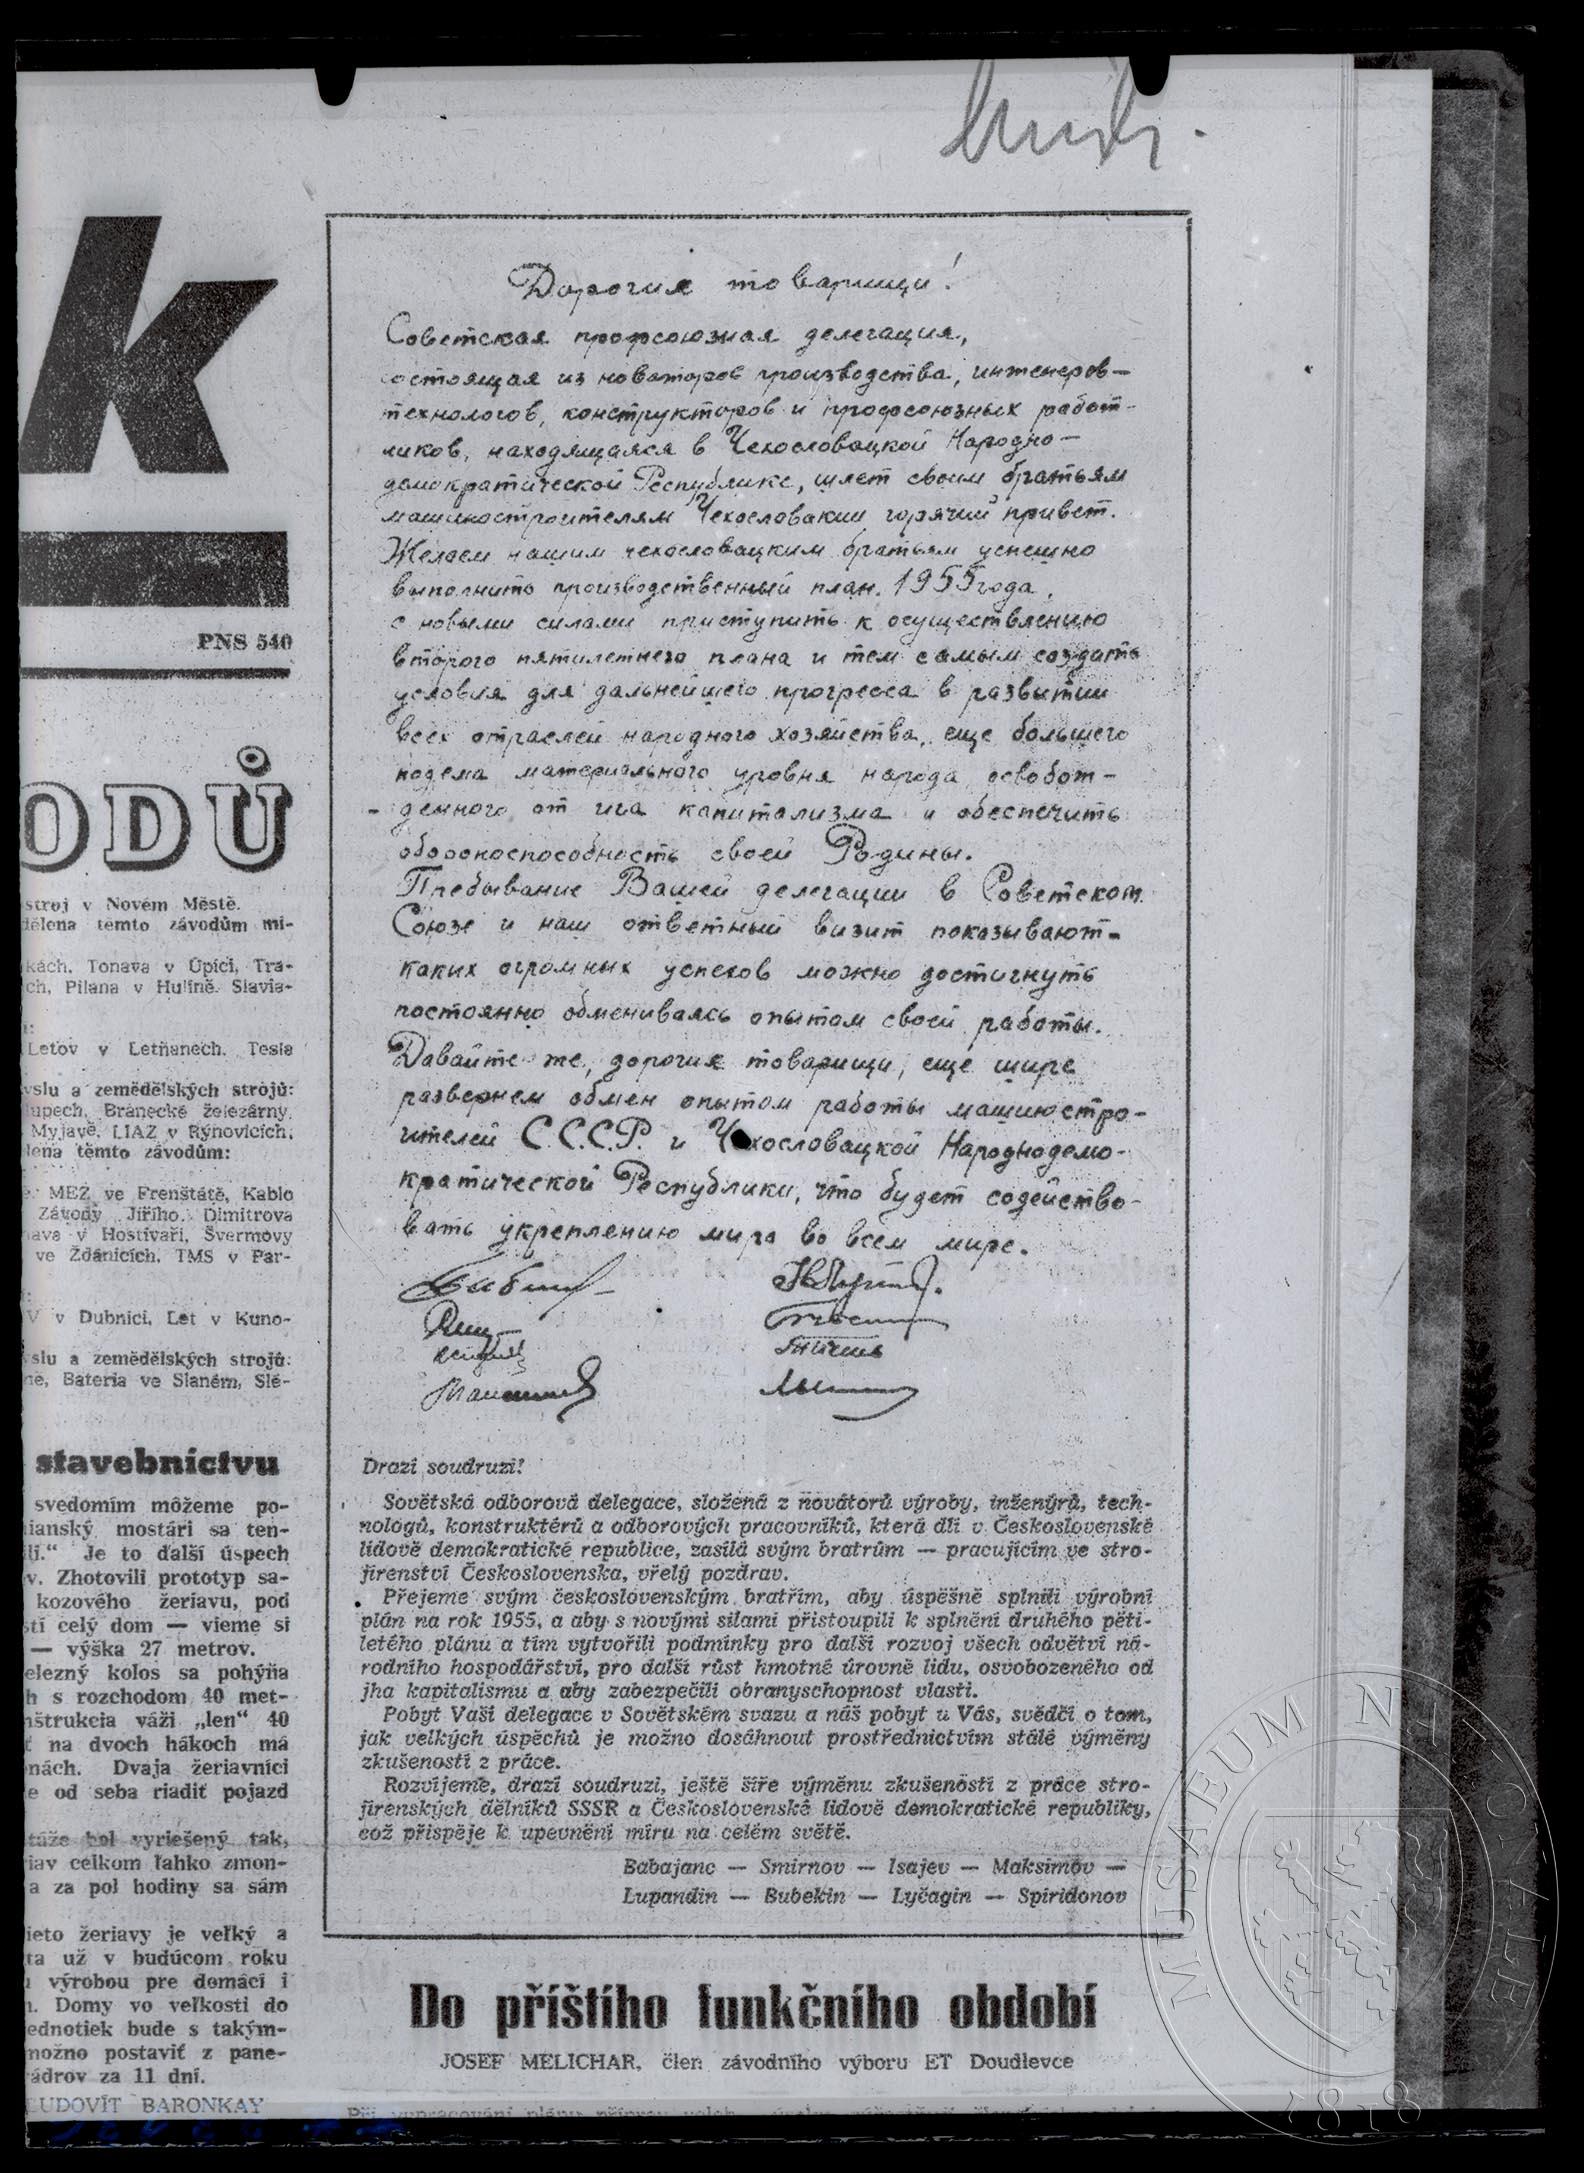 k
PNS 540
ODŮ
stroj v Novém Městě.
dělena těmto závodům mi-
kách, Tonava v Úpici, Tra-
ch, Pilana v Hulíně. Slavia-
Letov v Letňanech. Tesla
yslu a zemědělských strojů:
lupech, Branecké železárny,
Myjavě, LIAZ v Rýnovicích,
lena těmto závodům:
MEZ ve Frenštátě, Kablo
Závody Jiřího Dimitrova
nava v Hostivaři, Švermovy
ve Ždánicích, TMS v Par-
v Dubnici, Let v Kuno-
yslu a zemědělských strojů:
ně, Bateria ve Slaném, Slé-
stavebníctvu
svedomím môžeme po-
ianský mostári sa ten-
li.“ Je to ďalší úspech
v. Zhotovili prototyp sa-
kozového žeriavu, pod
stí celý dom — vieme si
— výška 27 metrov.
elezný kolos sa pohýňa
h s rozchodom 40 met-
nštrukcia váži „len“ 40
ť na dvoch hákoch má
nách. Dvaja žeriavníci
e od seba riadiť pojazd
táže bol vyriešený tak,
iav celkom ľahko zmon-
a za pol hodiny sa sám
ieto žeriavy je veľký a
ta už v budúcom roku
výrobou pre domáci i
n. Domy vo veľkosti do
ednotiek bude s takým-
možno postaviť z pane-
ádrov za 11 dní.
ĽUDOVÍT BARONKAY
Дорогие товарищи!
Советская профсоюзная делегация,
состоящая из новаторов производства, инженеров—
технологов, конструкторов и профсоюзных работ-
ников, находящаяся в Чехословацкой Народно—
демократической Республике, шлет своим братьям
машиностроителям Чехословакии горячий привет.
Желаем нашим чехословацким братьям успешно
выполнить производственный план 1955 года,
с новыми силами приступить к осуществлению
второго пятилетнего плана и тем самым создать
условия для дальнейшего прогресса в развитии
всех отраслей народного хозяйства, еще большего
подема материального уровня народа освобож-
- денного от ига капитализма и обеспечить
обороноспособность своей Родины.
Пребывание Вашей делегации в Советском
Союзе и наш ответный визит показывают-
каких огромных успехов можно достигнуть
постоянно обмениваясь опытом своей работы.
Давайте же, дорогие товарищи, еще шире
развернем обмен опытом работы машиностро-
ителей С.С.С.Р. и Чехословацкой Народнодемо-
кратической Республики, что будет содейство-
вать укреплению мира во всем мире.
Drazí soudruzi!
Sovětská odborová delegace, složená z novátorů výroby, inženýrů, tech-
nologů, konstruktérů a odborových pracovníků, která dlí v Československé
lidově demokratické republice, zasílá svým bratrům — pracujícím ve stro-
jírenství Československa, vřelý pozdrav.
Přejeme svým československým bratřím, aby úspěšně splnili výrobní
plán na rok 1955, a aby s novými silami přistoupili k splnění druhého pěti-
letého plánu a tím vytvořili podmínky pro další rozvoj všech odvětví ná-
rodního hospodářství, pro další růst hmotné úrovně lidu, osvobozeného od
jha kapitalismu a aby zabezpečili obranyschopnost vlasti.
Pobyt Vaší delegace v Sovětském svazu a náš pobyt u Vás, svědčí o tom,
jak velkých úspěchů je možno dosáhnout prostřednictvím stálé výměny
zkušeností z práce.
Rozvíjejme, drazí soudruzi, ještě šíře výměnu zkušeností z práce stro-
jírenských dělníků SSSR a Československé lidově demokratické republiky,
což přispěje k upevnění míru na celém světě.
Babajanc — Smirnov — Isajev — Maksimov —
Lupandin — Bubekin — Lyčagin — Spiridonov
Do příštího funkčního období
JOSEF MELICHAR, člen závodního výboru ET Doudlevce
MUSAEUM NATIONALE
1818